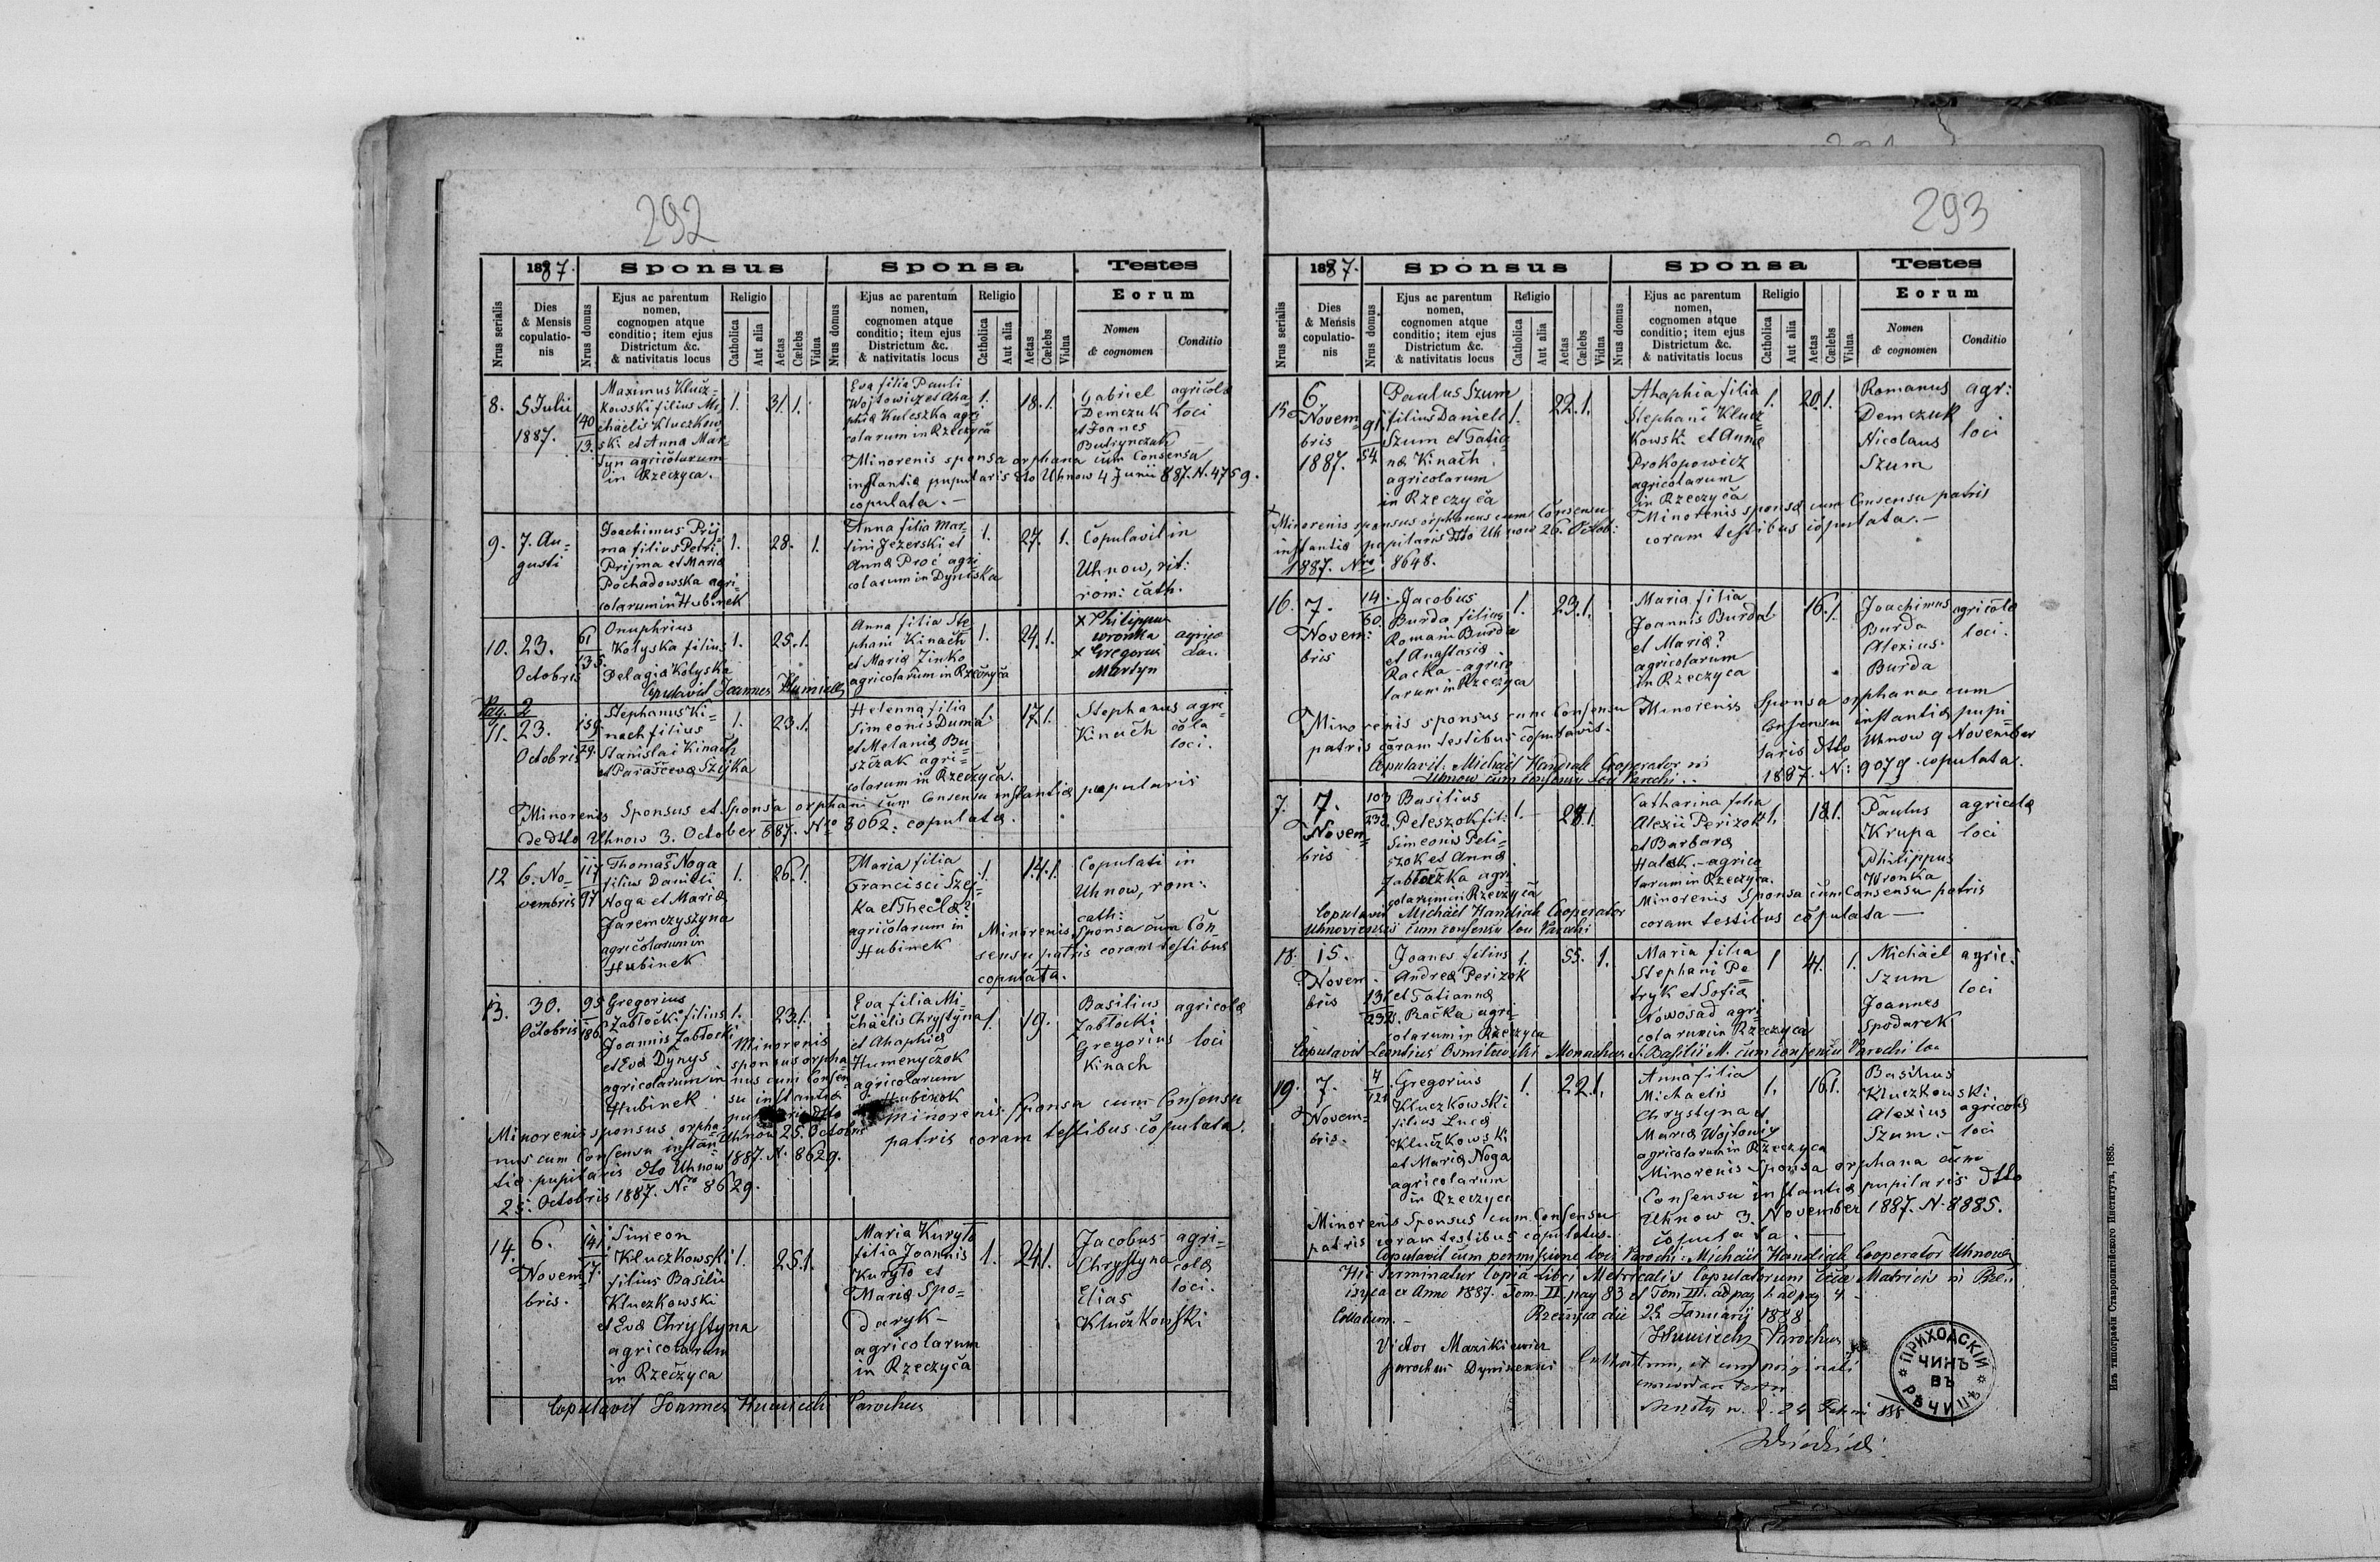 292
1887.
Sponsus
Sponsa
Testes
Nrus serialis
Dies
& Mensis
copulatio-
nis
Nrus domus
Ejus ac parentum
nomen,
cognomen atque
conditio; item ejus
Districtum &c.
& nativitatis locus
Religio
Catholica
Aut alia
Aetas
Cœlebs
Vidua
Nrus domus
Ejus ac parentum
nomen,
cognomen atque
conditio; item ejus
Districtum &c.
& nativitatis locus
Religio
Catholica
Aut alia
Aetas
Cœlebs
Vidua
Eorum
Nomen
& cognomen
Conditio
8.
5 Julii
1887.
140
13.
Maximus Klucz-
kowski filius Mi-
chaelis Kluczkow-
ski et Anna Mar-
tyn agricolarum
in Rzeczyca.
1.
31. 1.
Eva filia Pauli
Wojtowicz et Aha-
phia Kuleszka agri
colarum in Rzeczyca
1.
18. 1.
Gabriel
Demczuk
et Joanes
Butrynczuk
agricolæ
loci
Minorenis sponsa orphana cum Consensu
instantiæ pupilaris dto Uhnow 4 Junii 887. N. 4759.
copulata. —
9.
7. Au-
gusti
Joachimus Prij
ma filius Petri
Prijma et Maria
Pochadowska agri-
colarum in Hubinek
1.
28. 1.
Anna filia Mar-
tini Jezerski et
Anna Proc agri
colarum in Dyniska
1.
27. 1.
Copulavit in
Uhnow, rit:
rom: cath.
10.
23.
Octobris
61
135.
Onuphrius
Kolyska filius
Pelagia Kolyska
1.
25. 1.
Anna filia Ste
phani Kinach
et Maria Zinko
agricolarum in Rzeczyca
1.
24. 1.
x Philippus
Wronka
x Gregorius
Martyn
agrico
læ.
Copulavit Joannes
Pag. 2
11.
23.
Octobris
159
29.
Stephanus Ki-
nach filius
Stanislai Kinach
et Parascewa Szyjka
1.
23. 1.
Helenna filia
Simeonis Duma
et Melania Bu-
szczak agri-
colarum in Rzeczyca.
1.
17. 1.
Stephanus
Kinach
agri-
cola
loci.
Minorenis Sponsus et Sponsa orphani cum Consensu instantiæ pupularis
de dto Uhnow 3. October 887. Nro 8062. copulata.
12
6. No-
vembris
117
97
Thomas Noga
filius Danieli
Noga et Maria
Jaremczyszyna
agricolarum in
Hubinek
1.
26. 1.
Maria filia
Francisci Szej-
ka et Thecla?
agricolarum in
Hubinek
1.
17. 1.
Copulati in
Uhnow, rom:
cath:
Minorenis Sponsa cum Con-
sensu patris coram testibus
copulata.
13.
30.
Octobris
95
186
Gregorius
Zablocki filius
Joannis Zablocki
et Eva Dynys
agricolarum in
Hubinek
1.
23. 1.
Minorenis
sponsus orpha-
nus cum Consen-
su instantiæ
Uhnow 25. Octobris
1887. N. 8629.
Eva filia Mi-
chaelis Chrystyna
et Ahaphia
Humenyczok
agricolarum
Hubinok
1.
19.
Basilius
Zablocki
Gregorius
Kinach
agricolæ
loci
Minorenis Sponsa cum Consensu
patris coram testibus copulata.
Minorenis sponsus orpha-
nus cum Consensu instan-
tiæ pupilaris dto Uhnow
25. Octobris 1887. Nro 8629.
14.
6.
Novem-
bris.
141
17.
Simeon
Kluczkowski
filius Basilii
Kluczkowski
et Eva Chrystyna
agricolarum
in Rzeczyca
1.
25. 1.
Maria Kurylo
filia Joannis
Kurylo et
Maria Spo-
daryk -
agricolarum
in Rzeczyca
1.
24. 1.
Jacobus
Chrystyna
Elias
Kluczkowski
agri-
colæ
loci.
Copulavit Joannes Parochus
293
1887.
Sponsus
Sponsa
Testes
Nrus serialis
Dies
& Mensis
copulatio-
nis
Nrus domus
Ejus ac parentum
nomen,
cognomen atque
conditio; item ejus
Districtum &c.
& nativitatis locus
Religio
Catholica
Aut alia
Aetas
Cœlebs
Vidua
Nrus domus
Ejus ac parentum
nomen,
cognomen atque
conditio; item ejus
Districtum &c.
& nativitatis locus
Religio
Catholica
Aut alia
Aetas
Cœlebs
Vidua
Eorum
Nomen
& cognomen
Conditio
15.
6
Novem-
bris
1887.
91
54.
Paulus Szum
filius Danieli
Szum et Tatia-
na Kinach
agricolarum
in Rzeczyca
1.
22. 1.
Ahaphia filia
Stephani Klucz
kowski et Anna
Prokopowicz
agricolarum
in Rzeczyca
1.
20. 1.
Romanus
Demczuk
Nicolaus
Szum
agr:
loci
Minorenis sponsus orphanus cum Consensu
instantiæ pupilaris dto Uhnow 26. Octob:
1887. Nro 8648.
Minorenis sponsa cum Consensu patris
coram testibus copulata. —
16.
7.
Novem:
bris
14.
60.
Jacobus
Burda filius
Romani Burda
et Anastasia
Racka - agrico
larum in Rzeczyca
1.
23. 1.
Maria filia
Joannis Burda
et Maria?
agricolarum
in Rzeczyca
1.
16. 1.
Joachimus
Burda
Alexius
Burda
agricolæ
loci.
Minorenis sponsus cum Consensu
patris coram testibus copulavit.
Copulavit Michaël Handiak Cooperator in
Uhnow cum consensu loci Parochi.
Minorenis Sponsa orphana cum
Consensu instantiæ pupi-
laris dtto Uhnow 9 November
1887. N: 9079. copulata.
7.
7.
Novem-
bris
103
232.
Basilius
Peleszok fil:
Simeonis Peli-
szok et Anna
Zabloczka agri
colarum in Rzeczyca
1.
28. 1.
Catharina filia
Alexii Perizok
et Barbara
Halek - agrico
larum in Rzeczyca.
1.
18. 1.
Paulus
Krupa
Philippus
Wronka
agricolæ
loci
Copulavit Michaël Handiak Cooperator
Uhnoviensis cum consensu loci Parochi
Minorenis Sponsa cum Consensu patris
coram testibus copulata —
18.
15.
Novem
bris
131
232.
Joanes filius
Andrea Perizok
et Tatianna
Racka agri-
colarum in Rzeczyca
1.
55. 1.
Maria filia
Stephani Pe
tryk et Sofia
Nowosad agri-
colarum in Rzeczyca
1
41. 1.
Michaël
Szum
Joannes
Spodarek
agric:
loci
Copulavit Leontius Monachus S. Basilii M. cum consensu Parochi loci
19.
7.
Novem-
bris.
4
121
Gregorius
Kluczkowski
filius Luca
Kluczkowski
et Maria Noga
agricolarum
in Rzeczyca
1.
22. 1.
Anna filia
Michaelis
Chrystyna et
Maria Wojtowicz
agricolarum in Rzeczyca
1.
16. 1.
Basilius
Kluczkowski.
Alexius
Szum. -
agricolæ
loci
Minorenis Sponsa orphana cum
Consensu instantiæ pupilaris dtto
Uhnow 3. November 1887. N. 8885.
copulata. —
Minorenis Sponsus cum Consensu
patris coram testibus copulatus.
Copulavit cum permissione loci Parochi Michaël Handiak Cooperator Uhnow
Hic terminatur Copia Libri Metricalis Copulatorum Matricis in Rze-
czyca ex Anno 1887. Tom. II. pag 83 et Tom III. ad pag 1. ad pag 4.
Rzeczyca die 25 Januarij 1888
Collatum. —
Parochus
Victor Mazikiewicz
parochus Dyniscensis
Collatum, et cum originali
ПРИХОДСКІЙ
ЧИНЪ
ВЪ
РѢЧИЦѢ
Изъ типографіи Ставропигійского Института, 1885.